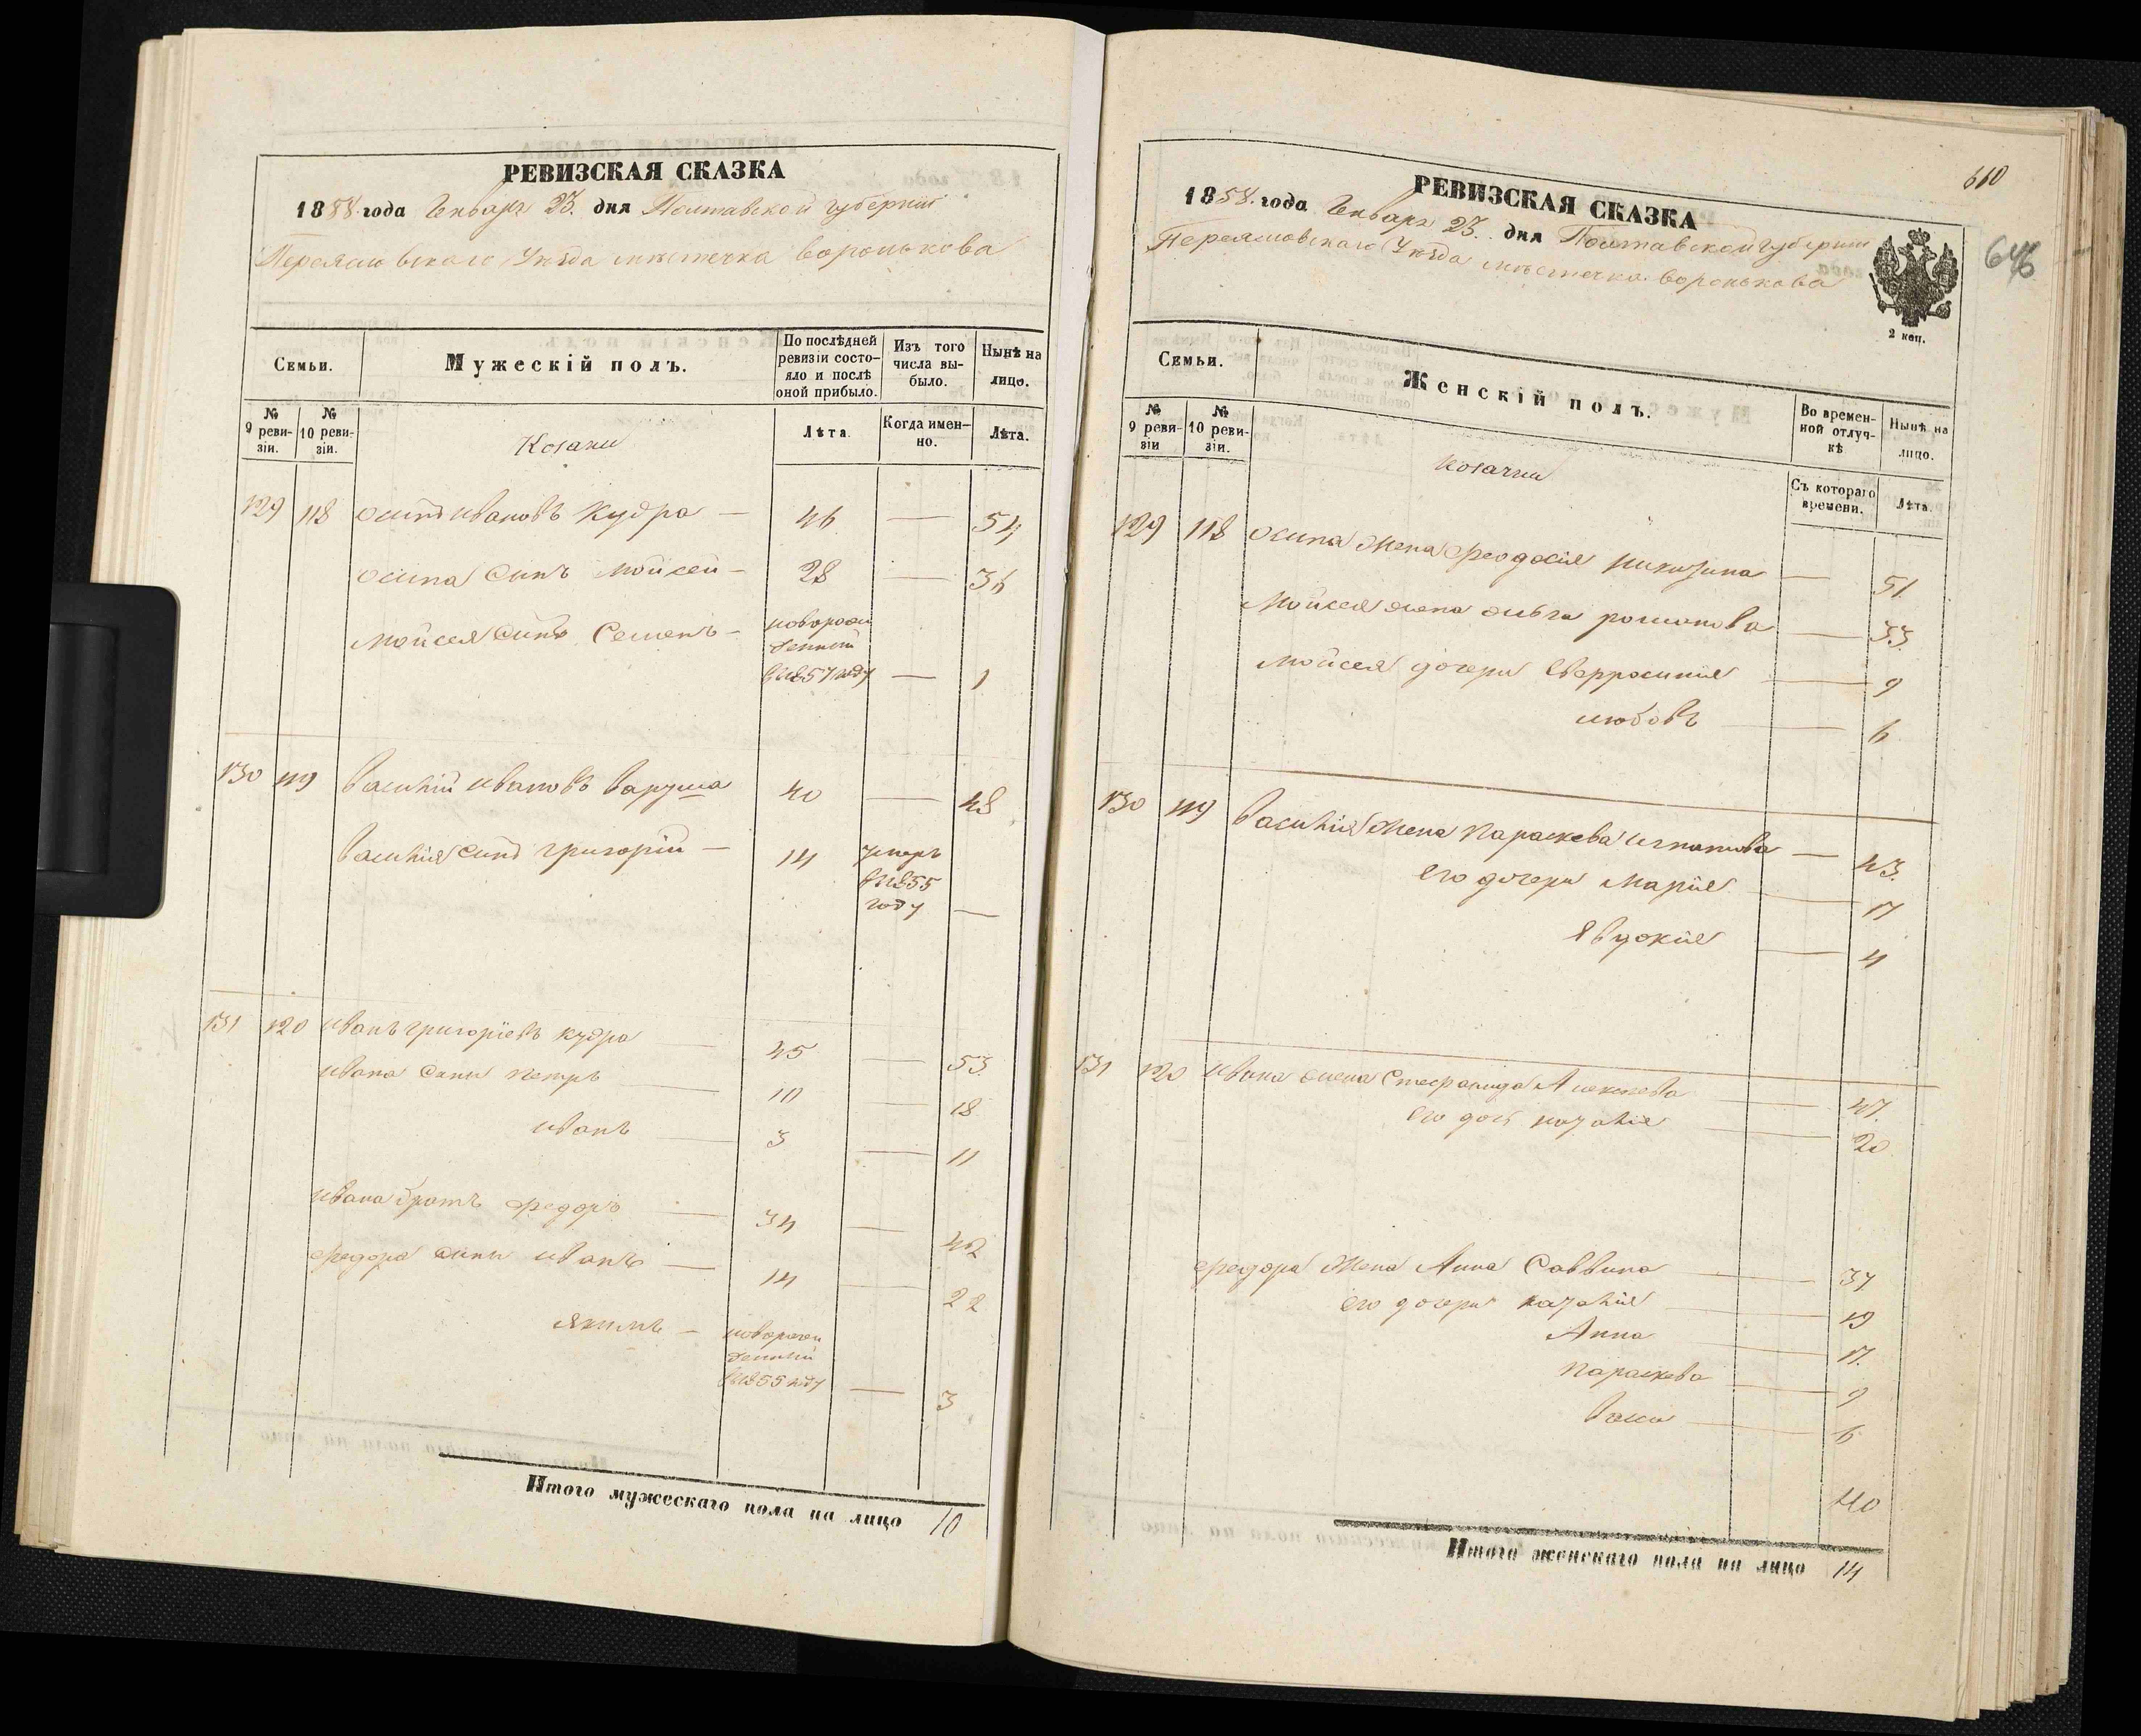 РЕВИЗСКАЯ СКАЗКА
1858 года Генваря 23. дня Полтавской губерніи
Переяславскаго Уѣзда мѣстечка Воронькова
Семьи.
Мужескій полъ.
По послѣдней ревизіи состояло и послѣ оной прибыло.
Изъ того числа выбыло.
Нынѣ на лицо.
№ 9 ревизіи.
№ 10 ревизіи.
Козаки
Лѣта.
Когда именно.
Лѣта.
129 118 Осипъ Ивановъ Кудра — 46 — 54
Осипа Сынъ Мойсей — 28 — 36
Мойсея Сынъ Семенъ — новорож
денный
в 1857 году — 1
130 119 Василій Ивановъ 40 — 48
Василія Сынъ Григорій — 14 умеръ
в 1855
году —
131 120 Иванъ Григоріевъ Кудра — 45 — 53
Ивана Сыны Петръ — 10 — 18
Иванъ — 3 — 11
Ивана братъ Федоръ — 34 — 42
Федора Сыны Иванъ — 14 22
Якимъ — новорож
денный
в 1855 году — 3
Итого мужескаго пола на лицо 10
610
646
РЕВИЗСКАЯ СКАЗКА
1858. года Генваря 23. дня Полтавской губерніи
Переяславскаго Уѣзда мѣстечка Воронькова
2 коп.
Семьи.
Женскій полъ.
Во временной отлучкѣ
Нынѣ на лицо.
№ 9 ревизіи
№ 10 ревизіи.
Козачки
Съ котораго времени.
Лѣта.
129 118 Осипа Жена Феодосія — 51
Мойсея жена Ольга Романова — 33
Мойсея дочери Евфросинія — 9
Любовъ — 6
130 119 Василія Жена Параскева Игнатова — 43
Его дочери Марія — 17
Явдокія — 4
131 120 Ивана жена Стефанида Алексѣева — 47
Его дочь Наталія — 20
Федора Жена Анна Саввина — 37
Его дочери Наталія — 19
Анна — 17
Параскева — 9
— 6
Итого женскаго пола на лицо 14